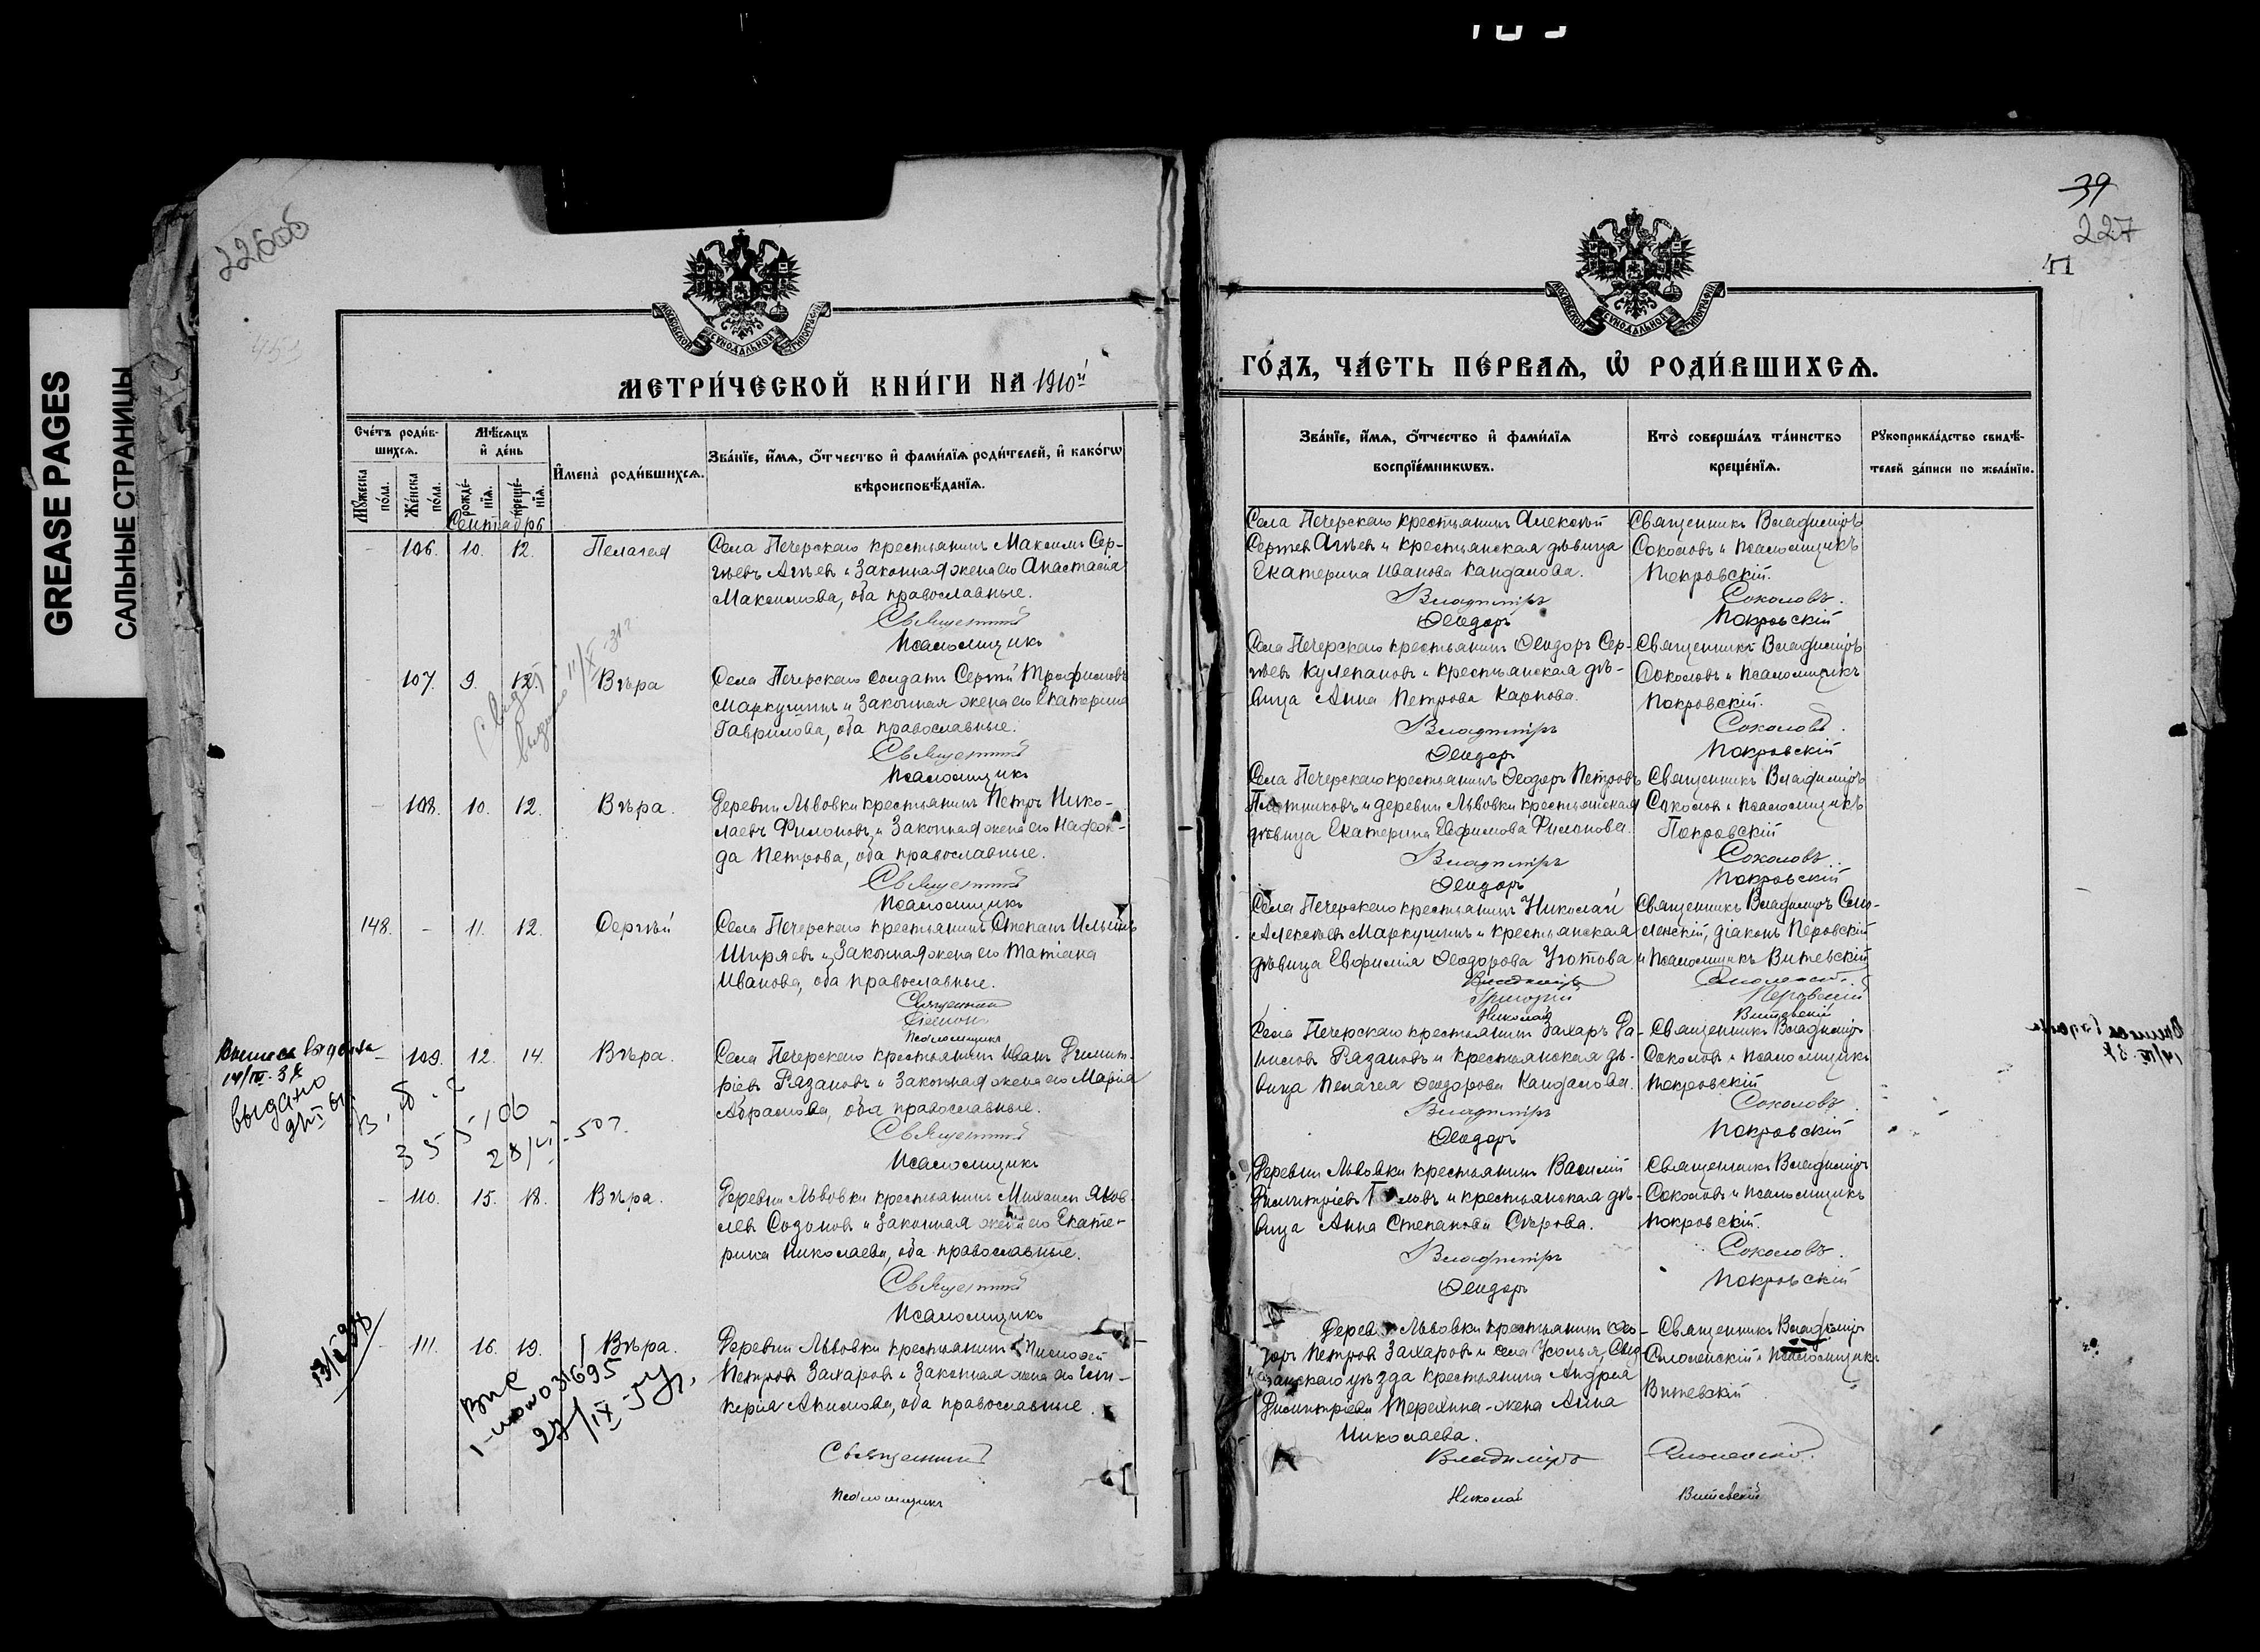 GREASE PAGES
САЛЬНЫЕ СТРАНИЦЫ
39
227
41
МОСКОВСКОЙ СѴНОДАЛЬНОЙ ТИПОГРАФІИ
МЕТРИ́ЧЕСКОЙ КНИ́ГИ НА 1910й
Сче́тъ роди́в-
шихсѧ.
Мѣ́сѧцъ
и҆ де́нь
Мꙋ́жеска
по́ла.
Же́нска
по́ла.
рожде́-
нїѧ.
креще́-
нїѧ.
И҆мена̀ роди́вшихсѧ.
Зва́нїе, и҆́мѧ, ѻ҆́тчество и҆ фами́лїѧ роди́телей, и҆ како́гѡ
вѣроисповѣ́данїѧ.
Сентябрь
106. 10. 12. Пелагея
Села Печерскаго крестьянинъ Максимъ Сер-
гѣевъ Агѣев и Законная жена его Анастасія
Максимова, оба православные.
Священникъ
Псаломщикъ
107. 9. 12. Вѣра
Села Печерскаго солдатъ Сергѣй Трофимовъ
Маркушинъ и Законная жена его Екатерина
Гаврилова, оба православные.
Священникъ
Псаломщикъ
108. 10. 12. Вѣра.
Деревни Львовки крестьянинъ Петръ Нико-
лаевъ Филоновъ и Законная жена его Надеж-
да Петрова, оба православные.
Священникъ
Псаломщикъ
148. - 11. 12. Сергѣй
Села Печерскаго крестьянинъ Степанъ Ильинъ
Ширяевъ и Законная жена его Татіана
Иванова, оба православные.
Священникъ
Псаломщикъ
109. 12. 14. Вѣра.
Села Печерскаго крестьянинъ Иванъ Димит-
ріевъ Рязановъ и Законная жена его Марія
Абрамова, оба православные.
Священникъ
Псаломщикъ
выдано
110. 15. 18. Вѣра.
Деревни Львовки крестьянинъ Михаилъ Яков-
лев Созонов и Законная жена его Екате-
рина Николаева, оба православные.
Священникъ
Псаломщикъ
111. 16. 19. Вѣра.
Деревни Львовки крестьянинъ Тимофей
Петров Захаров и Законная жена его Гли-
керія Акимова, оба православные.
Священникъ
Псаломщикъ
МОСКОВСКОЙ СѴНОДАЛЬНОЙ ТИПОГРАФІИ
ГО́ДЪ, ЧА́СТЬ ПЕ́РВАѦ, Ѡ҆ РОДИ́ВШИХСѦ.
Зва́нїе, и҆́мѧ, ѻ҆́тчество и҆ фами́лїѧ
воспрїе́мникѡвъ.
Кто̀ соверша́лъ та́инство
креще́нїѧ.
Рꙋкоприкла́дство свидѣ́-
телей за́писи по жела́нїю.
Села Печерскаго крестьянинъ Алексѣй
Сергѣев Агѣев и крестьянская дѣвица
Екатерина Иванова Кандалова.
Владиміръ
Ѳеодоръ
Священникъ Владиміръ
Соколовъ и псаломщикъ
Покровскій.
Соколовъ.
Покровскій
Села Печерскаго крестьянинъ Ѳеодоръ Сер-
гѣев Кулепанов и крестьянская дѣ-
вица Анна Петрова Карпова.
Владиміръ
Ѳеодоръ
Священникъ Владиміръ
Соколовъ и псаломщикъ
Покровскій.
Соколовъ.
Покровскій
Села Печерскаго крестьянинъ Ѳеодоръ Петровъ
Плотниковъ и деревни Львовки крестьянская
дѣвица Екатерина Евфимова Филонова.
Владиміръ
Ѳеодоръ
Священникъ Владиміръ
Соколов и псаломщикъ
Покровскій
Соколовъ.
Покровскій
Села Печерскаго крестьянинъ Николай
Алексѣевъ Маркушинъ и крестьянская
дѣвица Евфимія Ѳеодорова
Владиміръ
Григорій
Николай
Священникъ Владиміръ Смо-
ленскій, діаконъ Перовскій
и псаломщикъ Витевскій
Смоленскій.
Перовскій
Витевскій
Села Печерскаго крестьянинъ Захаръ Да-
нилов Рязановъ и крестьянская дѣ-
вица Пелагея Ѳеодорова Кандалова.
Владиміръ
Ѳеодоръ
Священникъ Владиміръ
Соколовъ и псаломщикъ
Покровскій
Соколовъ.
Покровскій
Деревни Львовки крестьянинъ Василій
Димитріевъ и крестьянская дѣ-
вица Анна Степанова Сѣрова.
Владиміръ
Ѳеодоръ
Священникъ Владиміръ
Соколовъ и псаломщикъ
Покровскій.
Соколовъ.
Покровскій
Деревни Львовки крестьянинъ Ѳео-
доръ Петров Захаров и села Усолья, Сыз-
ранскаго уѣзда крестьянина Андрея
Димитріева Терехина - жена Анна
Николаева.
Владиміръ
Николай
Священникъ Владиміръ
Смоленскій и псаломщикъ
Витевскій
Смоленскій.
Витевскій